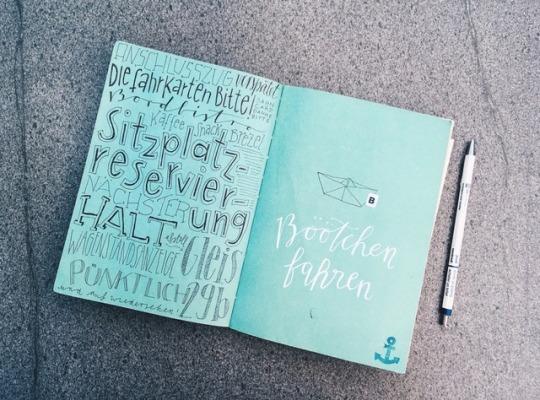 ANSCHLUSSZUG verpasst
Die fahrkarten Bitte!
Bordbistro
Kaffee Snacks Brezel
Sitzplatz-
reservier-
ung
NÄCHSTER
HALT
WAGENSTANDSANZEIGE
Gleis
29b
PÜNKTLICH
und auf wiedersehen!
B
Böötchen
fahren